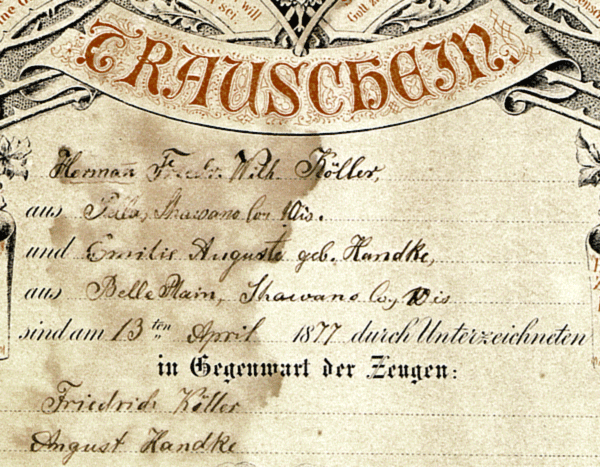 will
sei.
Gott
TRAUSCHEIN.
Herman Friedr. Wilh. Köller,
aus Pella, Shawano Co. Wis.
und Emilie Auguste geb. Handke,
aus Belle Plain, Shawano Co, Wis
sind am 13ten April 1877 durch Unterzeichneten
in Gegenwart der Zeugen:
Friedrich Köller
August Handke